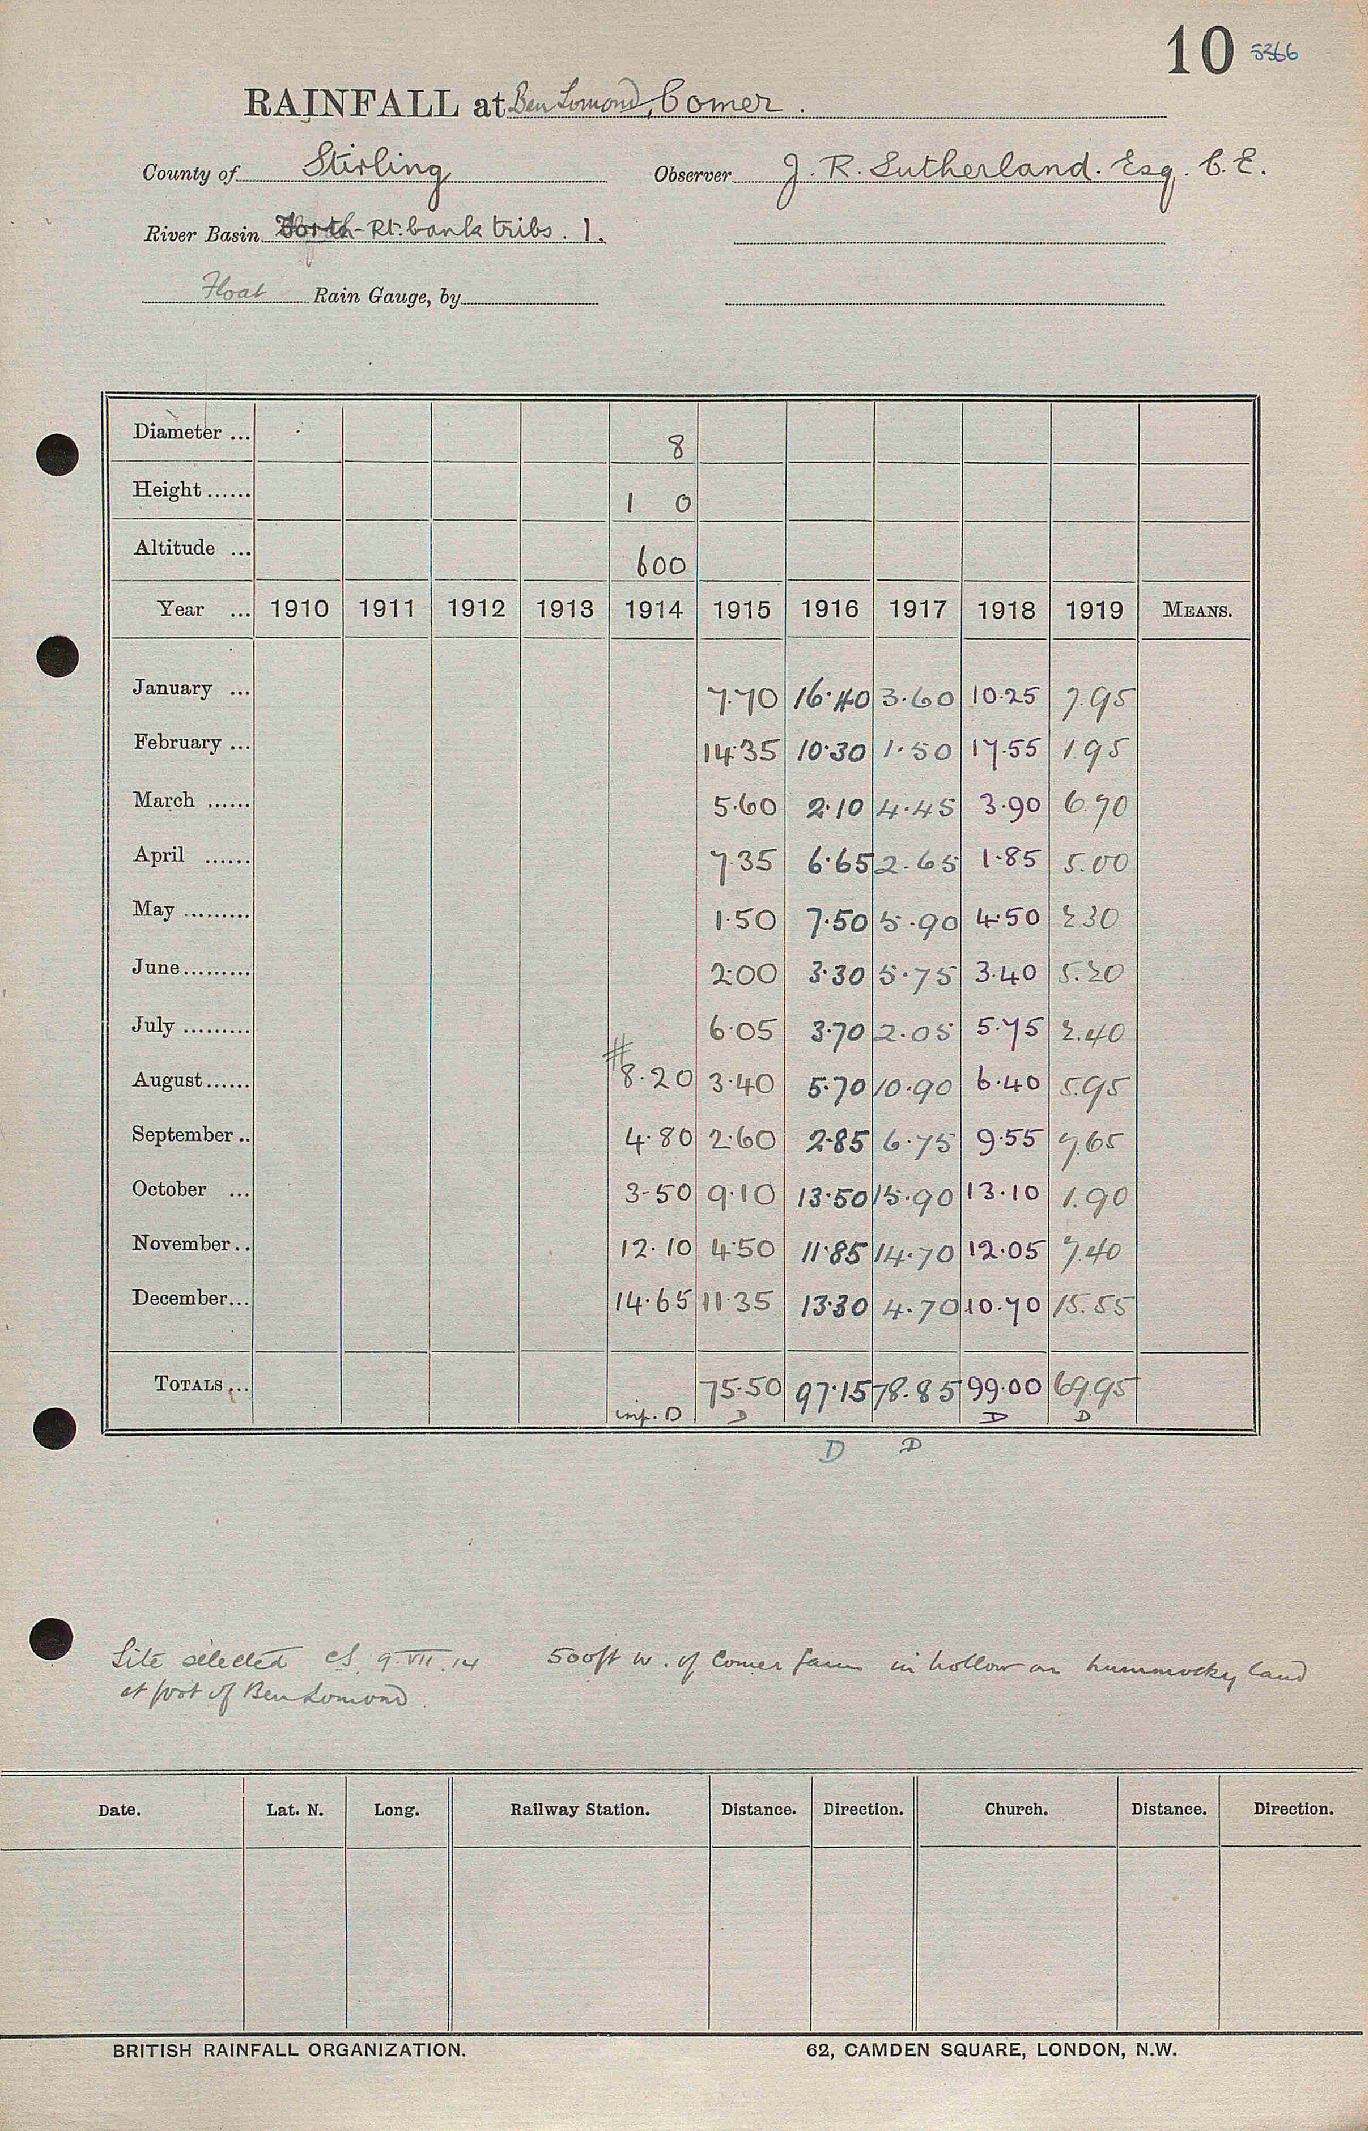 10 5366
RAINFALL at Ben Lomond, Comer.
County of Stirling Observer J. R. Sutherland. Esq. C. E.
River Basin Forth - Rt. bank tribs. 1.
Float Rain Gauge, by
Diameter ... 8
Height ...... 1 0
Altitude ... 600
Year ... 1910 1911 1912 1913 1914 1915 1916 1917 1918 1919 MEANS.
January ... 7.70 16.40 3.60 10.25 7.95
February ... 14.35 10.30 1.50 17.55 1.95
March ...... 5.60 2.10 4.45 3.90 6.70
April ...... 7.35 6.65 2.65 1.85 5.00
May ......... 1.50 7.50 5.90 4.50 2.30
June ......... 2.00 3.30 5.75 3.40 5.20
July ......... 6.05 3.70 2.05 5.75 2.40
August ...... #8.20 3.40 5.70 10.90 6.40 5.95
September .. 4.80 2.60 2.85 6.75 9.55 7.65
October ... 3.50 9.10 13.50 15.90 13.10 1.90
November .. 12.10 4.50 11.85 14.70 12.05 7.40
December ... 14.65 11.35 13.30 4.70 10.70 15.55
TOTALS ... 75.50 97.15 78.85 99.00 69.95
imp. D D D D
D D
Site selected CS 9.VII.14 500ft W. of Comer farm in hollow on hummocky land
at foot of Ben Lomond.
Date. Lat. N. Long. Railway Station. Distance. Direction. Church. Distance. Direction.
BRITISH RAINFALL ORGANIZATION. 62, CAMDEN SQUARE, LONDON, N.W.